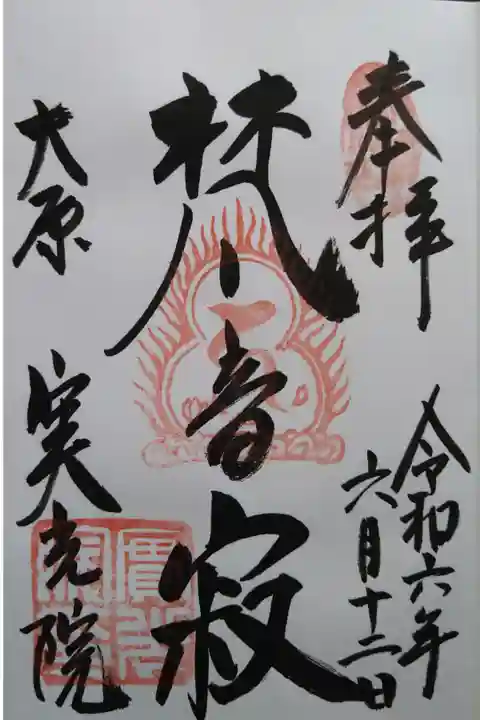 奉拝
令和六年
六月十二日
梵音寂
大原 実光院